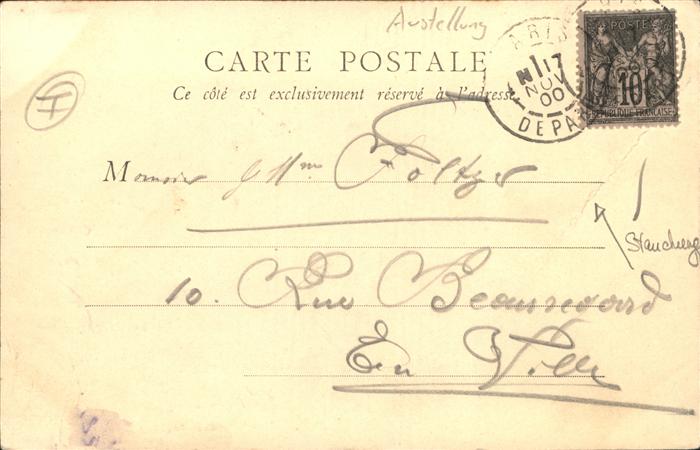 Austellung
PARIS
DEPART
17
NOV
00
POSTE
10
REPUBLIQUE FRANÇAISE
CARTE POSTALE
Ce côté est exclusivement réservé à l'adresse
I
Monsieur & Mme Foltzer
Stauchung
10. Rue Beauregard
En Ville